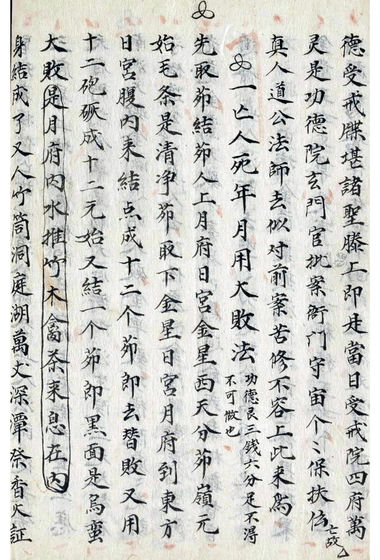 德受戒牒堪諸聖滕上即是當日受戒院四府萬
灵是功德院玄門官批案衙門守宙个〻保扶伝亡故
真人道公法師去似对前案苦修不容上此来為
一亡人死年月用大敗法 功德艮三錢六分足不得不可散也
先取茆結茆人上月府日宮金星西天分茆嶺元
始毛条是清净茆取下金星日宮月府到東方
日宮腹內来結点成十二个茆即去替敗又用
十二砲砾成十二元始又結一个茆即黑面是烏蛮
大敗是月府內水推竹木禽茶来息在內
身結成了又人竹筒洞庭湖萬丈深潭祭香火証